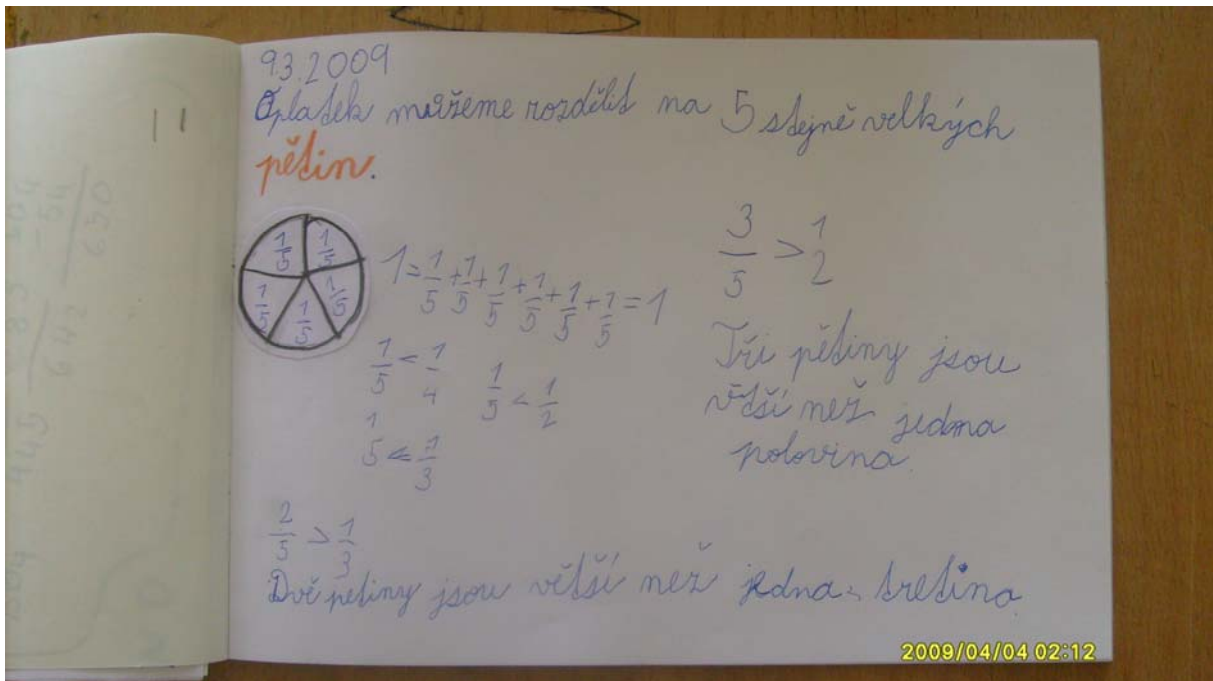 11
9.3.2009
Oplatek můžeme rozdělit na 5 stejně velkých
pětin.
1/5 1/5 1/5 1/5 1/5
1=1/5+1/5+1/5+1/5+1/5+1/5=1
1/5<1/4
1/5<1/2
1/5<1/3
3/5>1/2
Tři pětiny jsou
větší než jedna
polovina.
2/5>1/3
Dvě petiny jsou větší než jedna tretina
2009/04/04 02:12